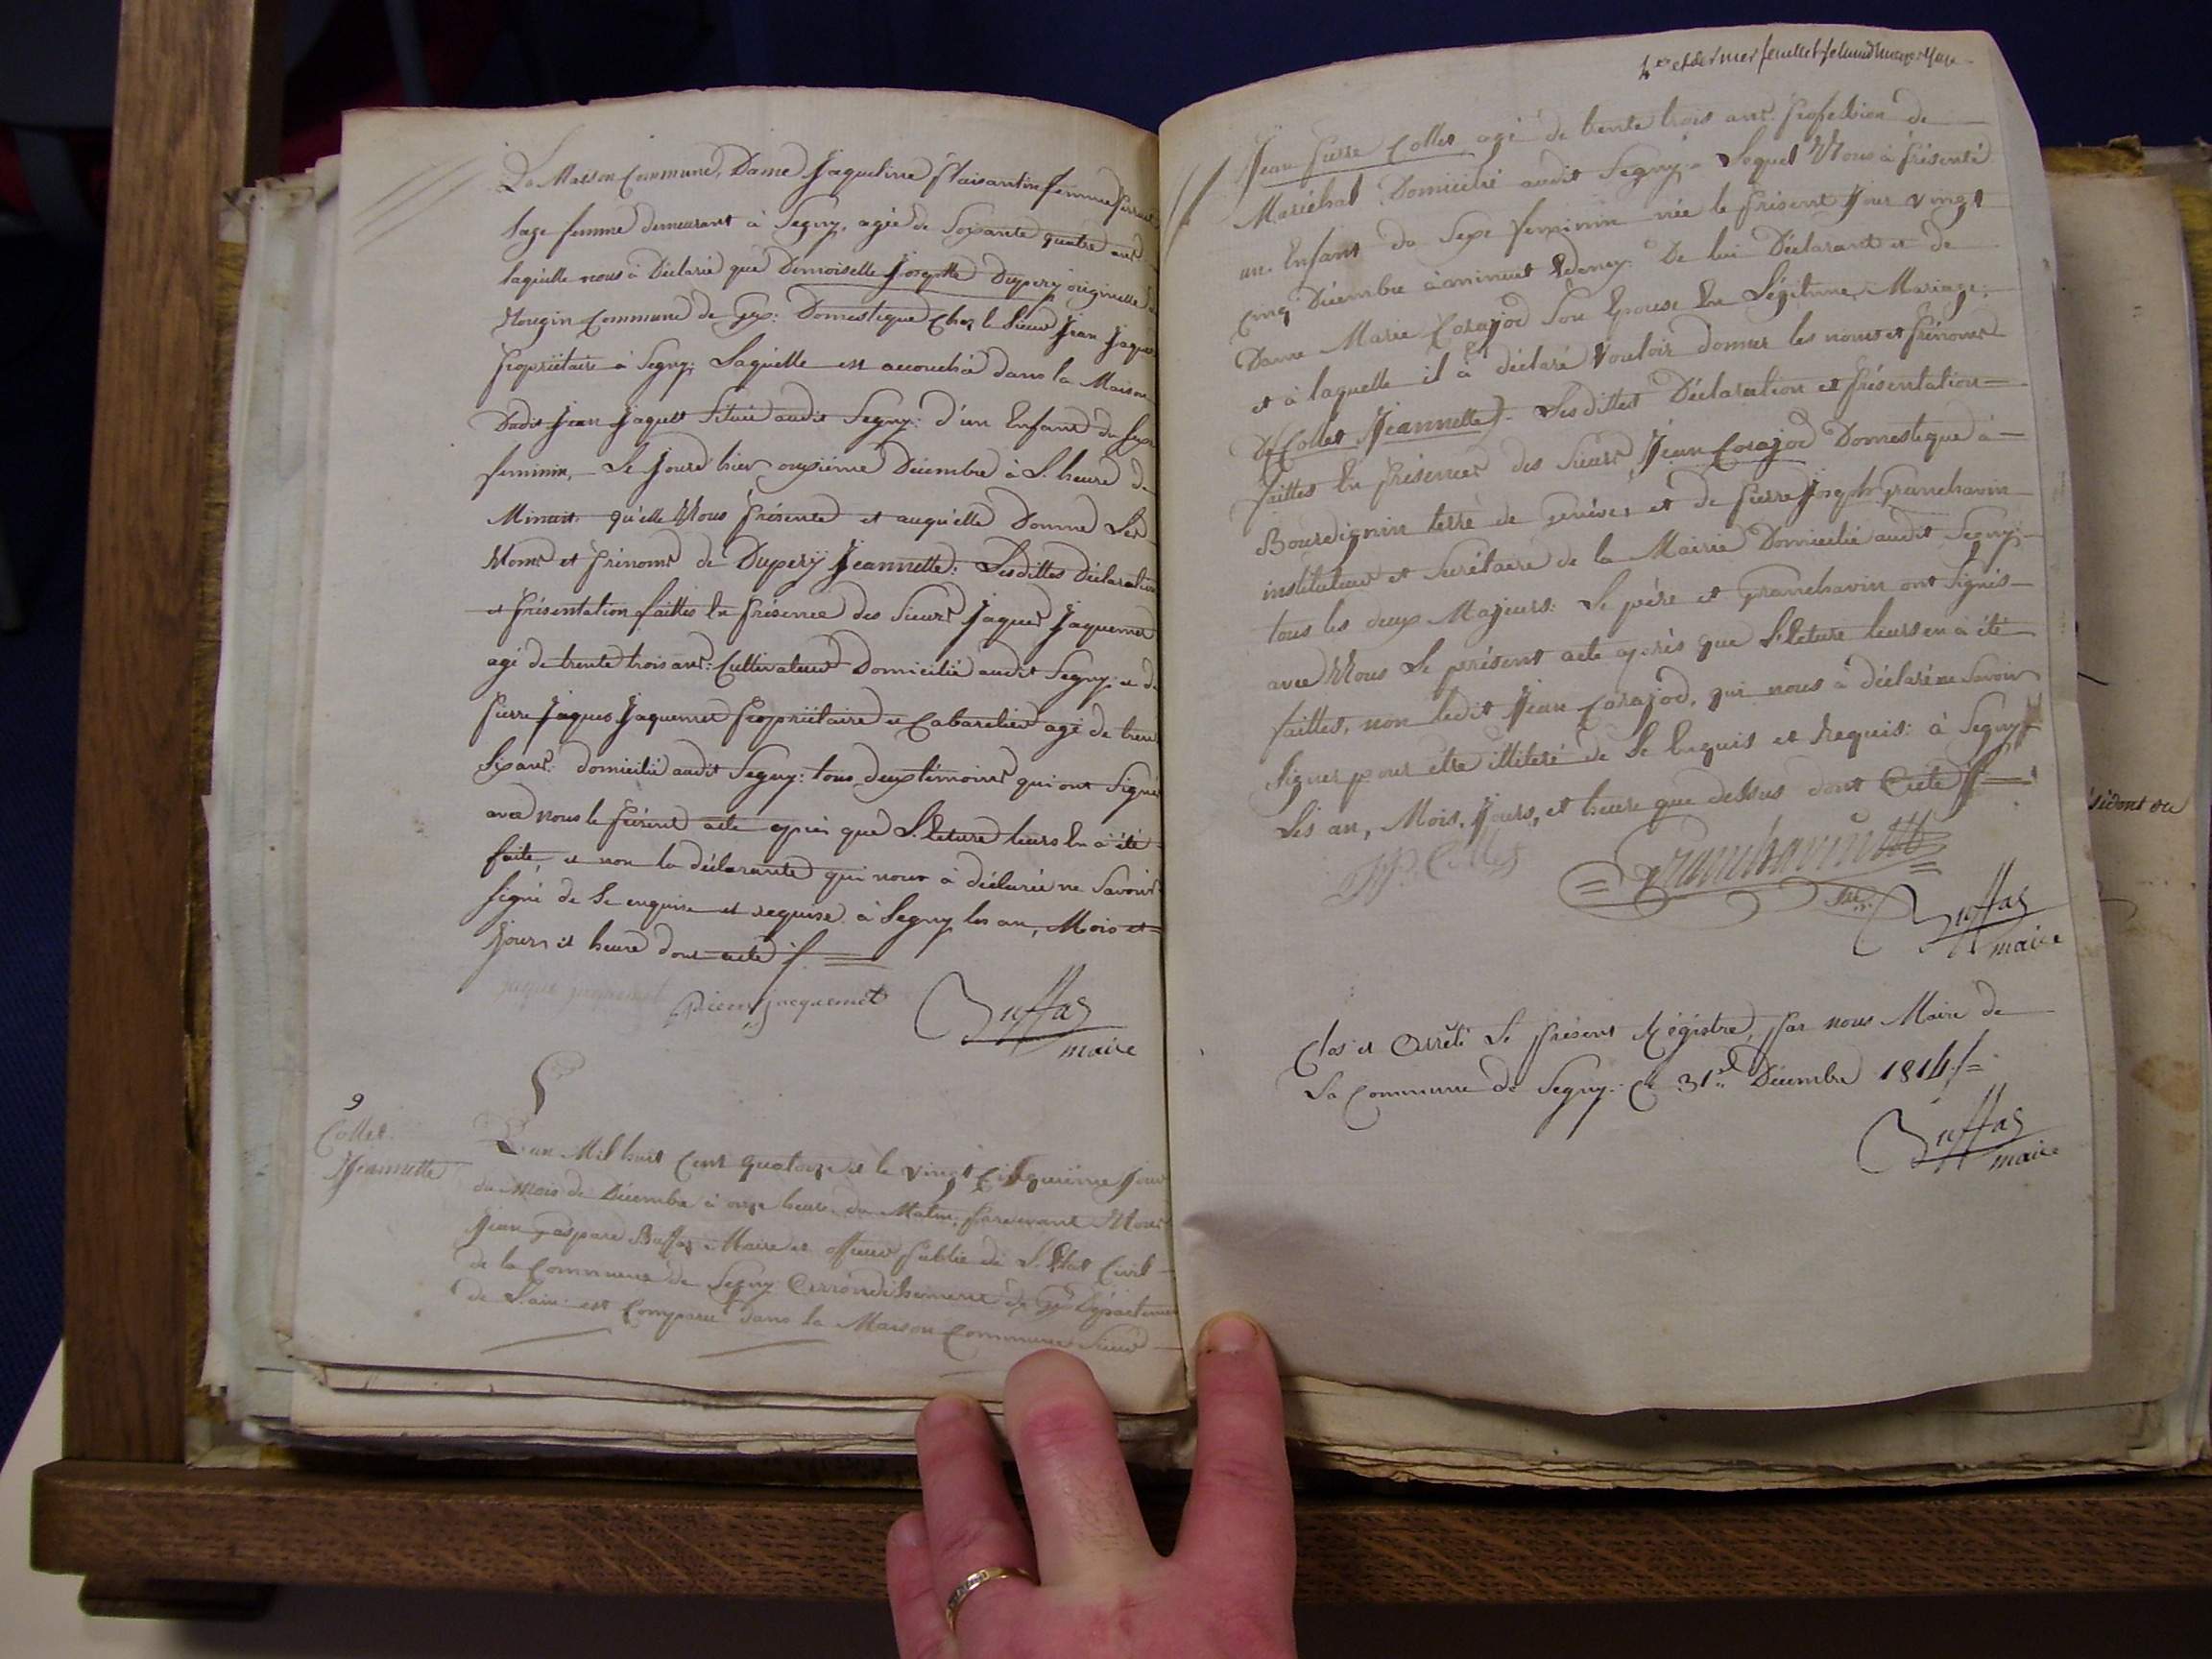 La Maison Commune, Dame Jaqueline Plaisantin femme
Sage femme demeurant à Segny, agée de Soixante quatre ans
laquelle nous à Déclarée que Demoiselle Josephte Dupery originelle
Commune de Gex: Domestique Chez le Sieur Jean Jaques
Propriétaire à Segny; Laquelle est accouchée dans la Maison
Dudit Jean Jaquet Située audit Segny: d'un Enfant du Sexe
feminin, Le Jourd'hier onzième Décembre à L'heure de
Minuit. qu'elle Nous Présente et auquelle Donne Les
Noms et Prénoms de Dupery Jeannette: Lesdittes Déclaration
et Présentation faittes En Présence des Sieurs Jaques Jaquemet
agé de trente trois ans: Cultivateur Domicilié audit Segny: et de
Pierre Jaques Jaquemet Propriétaire et Cabaretier agé de trente
Six ans: domicilié audit Segny: tous deux témoins qui ont Signé
avec nous le Présent acte après que L. leture leurs En à été
faite, et non la déclarante qui nous à déclarée ne Savoir
Signé de Ce enquise et requise. à Segny les an, Mois et
Jours et heure dont acte
Pierre jacquemet Buffaz
maire
9
Collet
Jeannette
L'an Mil huit Cent Quatorze et le vingt Cinquième Jour
du mois de Décembre à onze heure du Matin; Pardevant Nous
Jean Gaspard Buffaz Maire et officier Public de L'Etat Civil
de la Commune de Segny Arrondissement de Gex Département
de L'ain: est Comparu dans la Maison Commune Sieur
4e et dernier feuillet
Jean Pierre Collet agé de trente trois ans. Profession de
Maréchal Domicilié audit Segny. Lequel Nous à Présenté
un Enfant du Sexe feminin née le Présent Jour vingt
Cinq Décembre à minuit De lui Déclarant et de
Dame Marie Corajod Son Epouse En Légitime Mariage,
et à laquelle il à déclaré Vouloir donner les noms et Prénoms
De Collet Jeannette. Lesdittes Déclaration et Présentation
faittes En Présences des Sieurs Jean Corajod Domestique à
Bourdignin terre de Genève, et de Pierre Joseph Granchavin
instituteur et Secrétaire de la Mairie Domicilié audit Segny
tous les deux Majeurs: Le père et Granchavin ont Signés
avec Nous Le présent acte après que L. leture leurs en à été
faittes, non ledit Jean Corajod, qui nous à déclaré ne Savoir
Signer pour être illiteré de Ce Enquis et Requis: à Segny
Les an, Mois, Jours, et heure que dessus dont Acte
JP. Collet Granchavin
Buffaz
maire
Clos et Arrêté Le Présent Régistre, Par nous Maire de
La Commune de Segny: Ce 31 Décembre 1814
Buffaz
maire